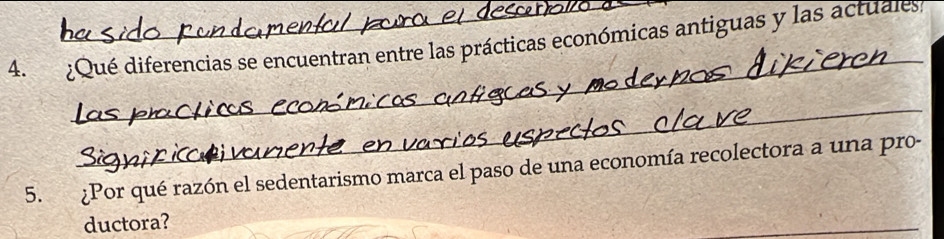 ha sido fundamental para el desarrollo
4. ¿Qué diferencias se encuentran entre las prácticas económicas antiguas y las actuales?
Las practicas económicas antigūas y modernos difieren
significativamente en varios aspectos clave
5. ¿Por qué razón el sedentarismo marca el paso de una economía recolectora a una pro-
ductora?